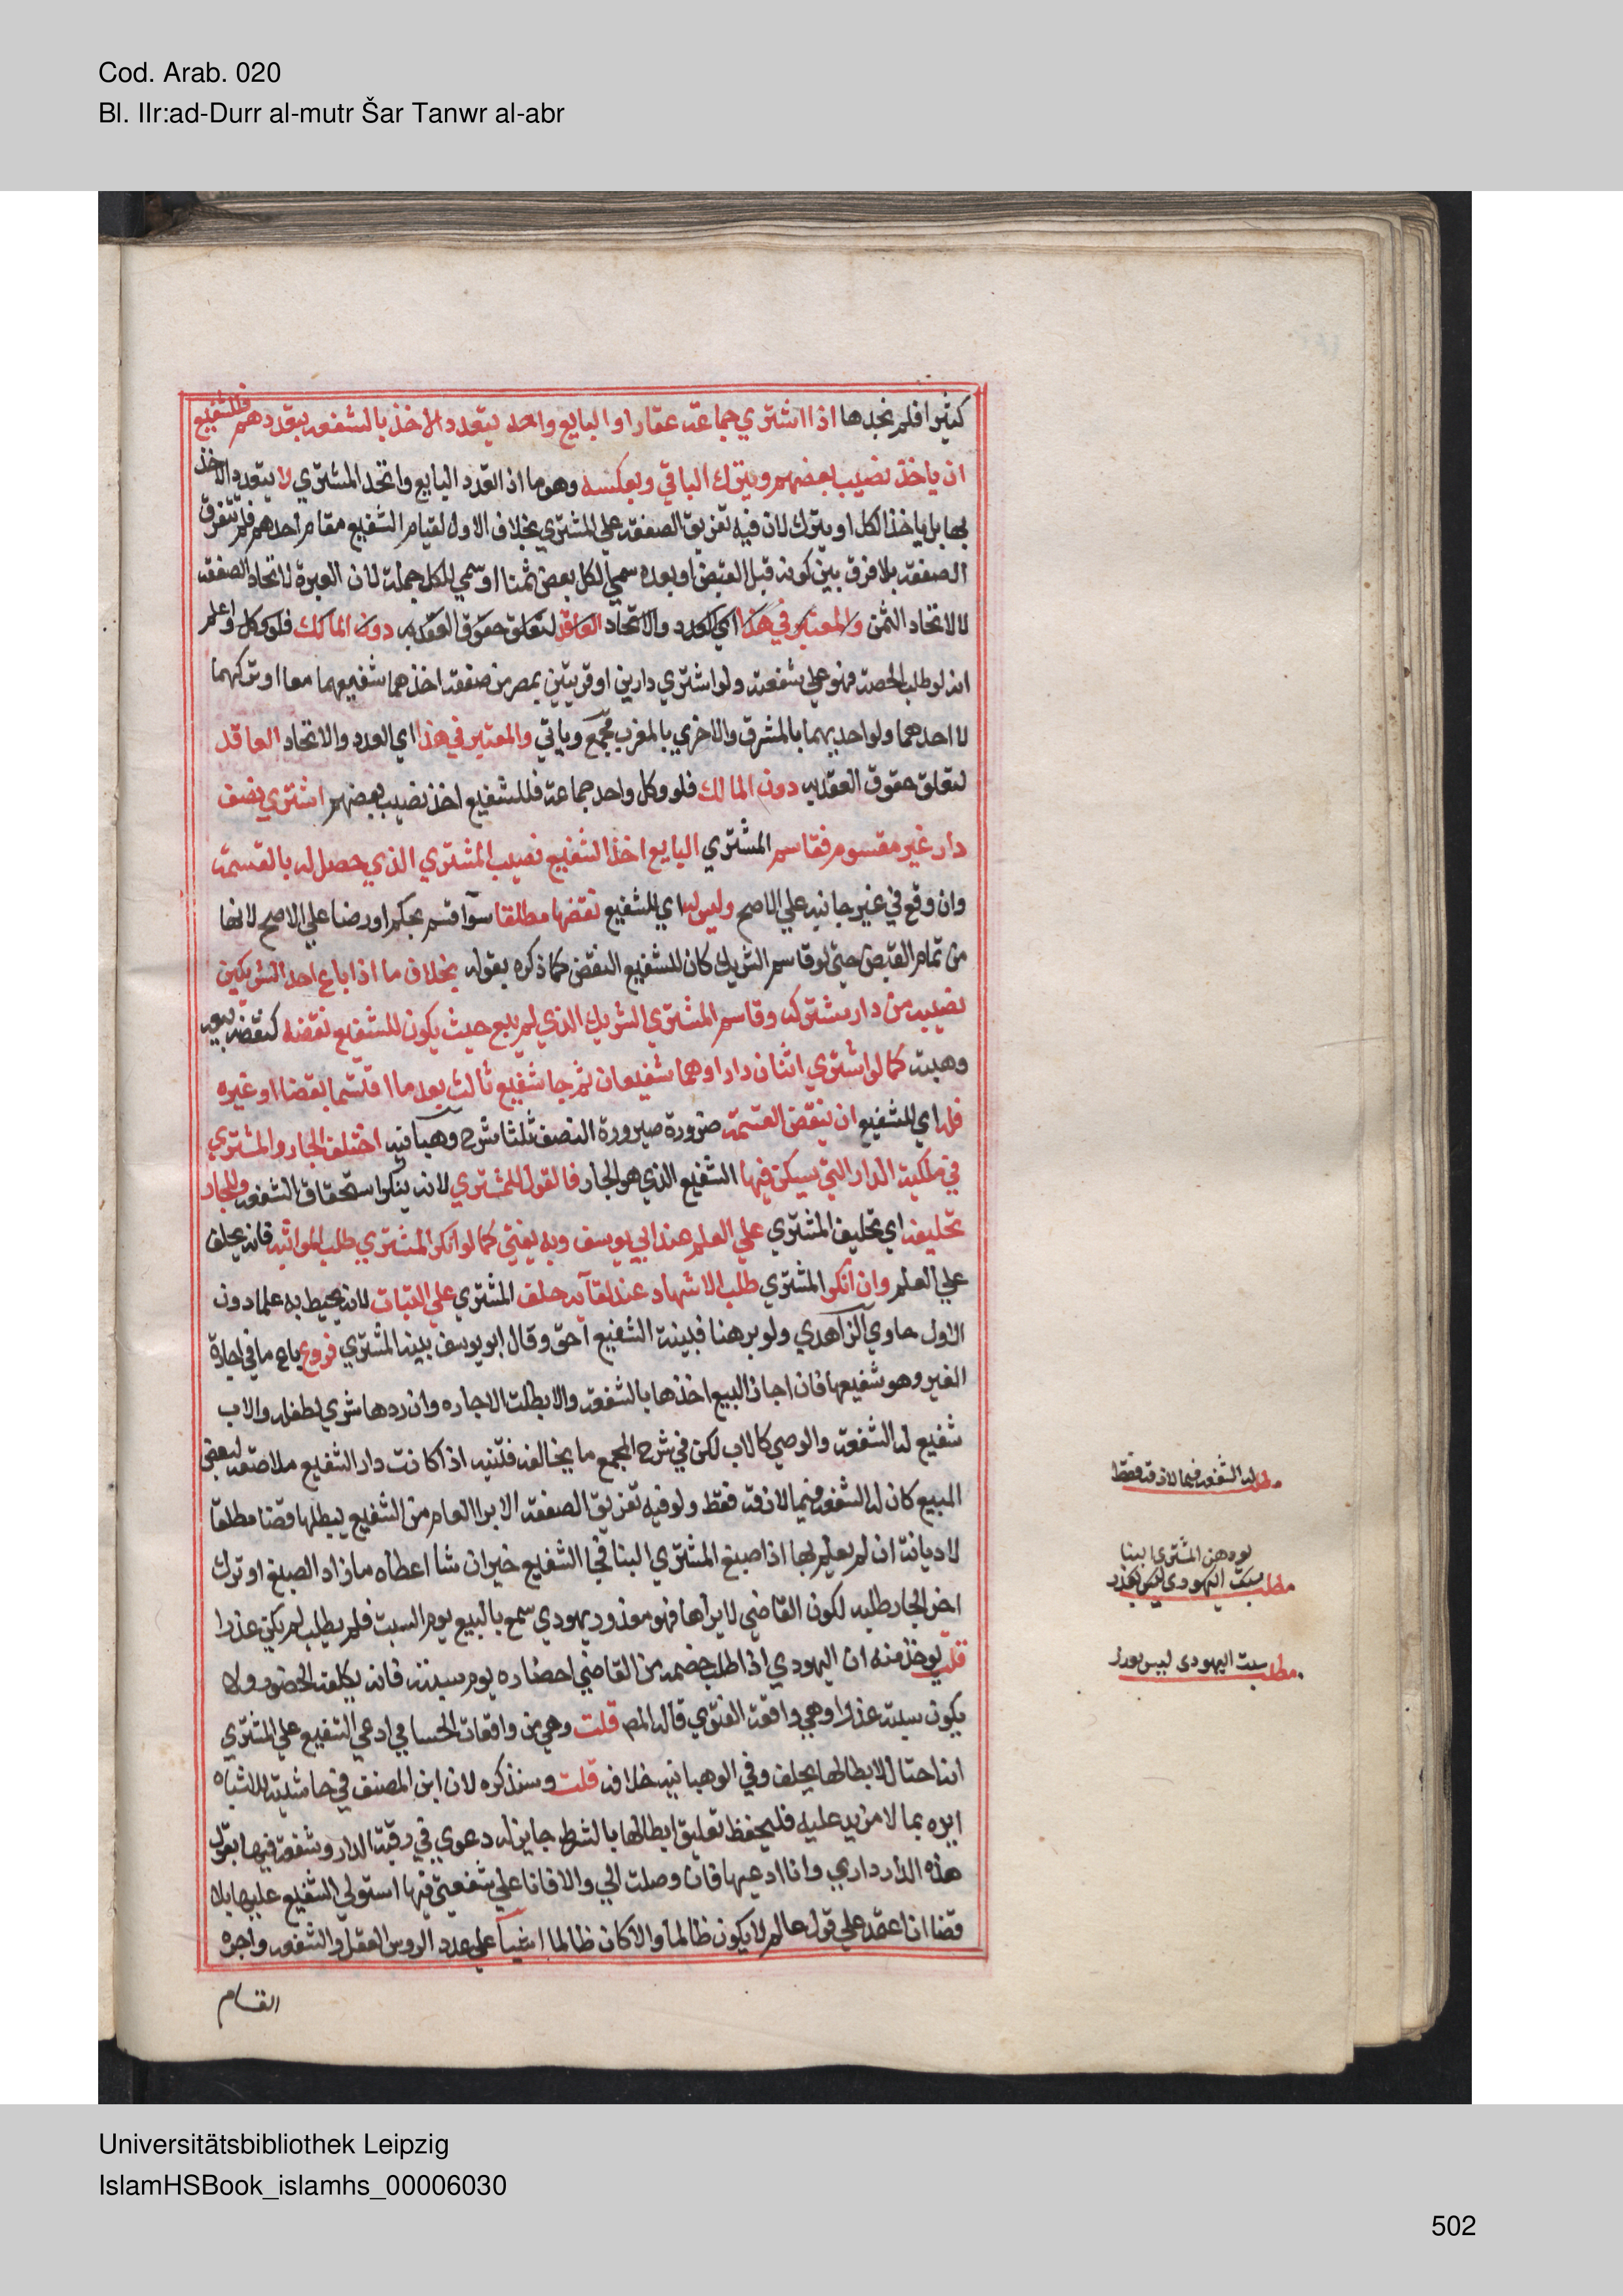 Cod. Arab. 020
Bl. IIr:ad-Durr al-mutr Šar Tanwr al-abr
كثيرا فلم نجدها اذا اشتري جماعة عقارا او البايع واحد يتعدد الاخذ بالشفعه بتعددهم فللشفيع
ان ياخذ نصيب بعضهم ويترك الباقي وبعكسه وهو ما اذ العدد البايع واتحد المشتري لا يتعدد الاخذ
بها بل ياخذ الكل او يترك لان فيه تفريق الصفقه علي المشتري بخلاف الاول لقيام الشفيع مقام احدهم فلم تتفرق
الصفقه بلا فرق بين كونه قبل القبض او بعده سمي لكل بعض ثمنا او سمي للكل جملة لان العبرة لاتحاد الصفقه
لا لاتحاد الثمن والمعتبر في هذا اي العدد والاتحاد العاقد لتعلق حقوق العقد به دون المالك فلو وكل واعلم
انه لو طلب الحصه فهو علي شفعته ولو اشتري دارين او قريتين بمصرين صفقه اخذهما شفيعهما معا او تركهما
لا احدهما ولو احديهما بالمشرق والاخري بالمغرب مجمع وياتي والمعتبر في هذا اي العدد والاتحاد العاقد
لتعلق حقوق العقد به دون المالك فلو وكل واحد جماعة فللشفيع اخذ نصيب بعضهم اشتري نصف
دار غير مقسوم فقاسم المشتري البايع اخذ الشفيع نصيب المشتري الذي حصل له بالقسمة
وان وقع في غير جانبه علي الاصح وليس له اي للشفيع نقضها مطلقا سوا قسم بحكم او رضا علي الاصح لانها
من تمام القبض حتي لو قاسم الشريك كان للشفيع النقض كما ذكره بقوله بخلاف ما اذا باع احد الشريكين
نصيبه من دار مشتركه وقاسم المشتري الشريك الذي لم يبع حيث يكون للشفيع نقضه كنقضه بيعه
وهبته كما لو اشتري اثنان دارا وهما شفيعان ثم جا شفيع ثالث بعد ما اقتسما بقضا او غيره
فله اي للشفيع ان ينقض القسمة ضرورة صيرورة النصف ثلثا شرح وهبانيه اختلف الجار والمشتري
في ملكية الدار التي يسكن فيها الشفيع الذي هو الجار فالقول للمشتري لانه ينكر استحقاق الشفعه وللجار
تحليفه اي تحليف المشتري علي العلم عند ابي يوسف وبه يفتي كما لو انكر المشتري طلب المواثبه فانه يحلف
علي العلم وان انكر المشتري طلب الاشهاد عند لقآيه حلف المشتري علي البتات لانه يحيط به علما دون
الاول حاوي الزاهدي ولو برهنا فبينة الشفيع احق وقال ابو يوسف بينة المشتري فروع باع ما في اجارة
الغير وهو شفيعها فان اجاز البيع اخذها بالشفعه والا بطلت الاجاره وان ردها شري لطفله والاب
شفيع له الشفعه والوصي كالاب لكن في شرح المجمع ما يخالفه فتنبه اذا كانت دار الشفيع ملاصقه لبعض
المبيع كان له الشفعه فيما لازقه فقط ولو فيه تفريق الصفقه الابرا العام من الشفيع يبطلها قضا مطلقا
لا ديانة ان لم يعلم بها اذا صبغ المشتري البنا فجا الشفيع خير ان شا اعطاه ما زاد الصبغ او ترك
اخر الجار طلبه لكون القاضي لا يراها فهو معذور يهودي سمع بالبيع يوم السبت فلم يطلب لم يكن عذرا
قلت يوخذ منه ان اليهودي اذا طلب خصمه من القاضي احضاره يوم سبته فانه يكلفه الحضور ولا
يكون سبته عذرا وهي واقعة الفتوي قاله المص قلت وهي من واقعات الحسامي ادعي الشفيع علي المشتري
انه احتال لابطالها يحلف وفي الوهبانيه خلافه قلت وسنذكره لان ابن المصنف في حاشيته للاشباه
ايده بما لا مزيد عليه فليحفظ تعليق ابطالها بالشرط جايز له دعوي في رقبة الدار وشفعة فيها يقول
هذه الدار داري وانا ادعيها فان وصلت الي والا فانا علي شفعتي فيها استولي الشفيع عليها بلا
قضا ان اعتمد علي قول عالم لا يكون ظالما والا كان ظالما اشيآ علي عدد الروس العقل والشفعه واجرة
القسام
مطلب له الشفعه فيما لازقه فقط
المشتري البنا
مطلب سبت اليهودي ليس بعذر
مطلب سبت اليهودي ليس بعذر
Universitätsbibliothek Leipzig
IslamHSBook_islamhs_00006030
502